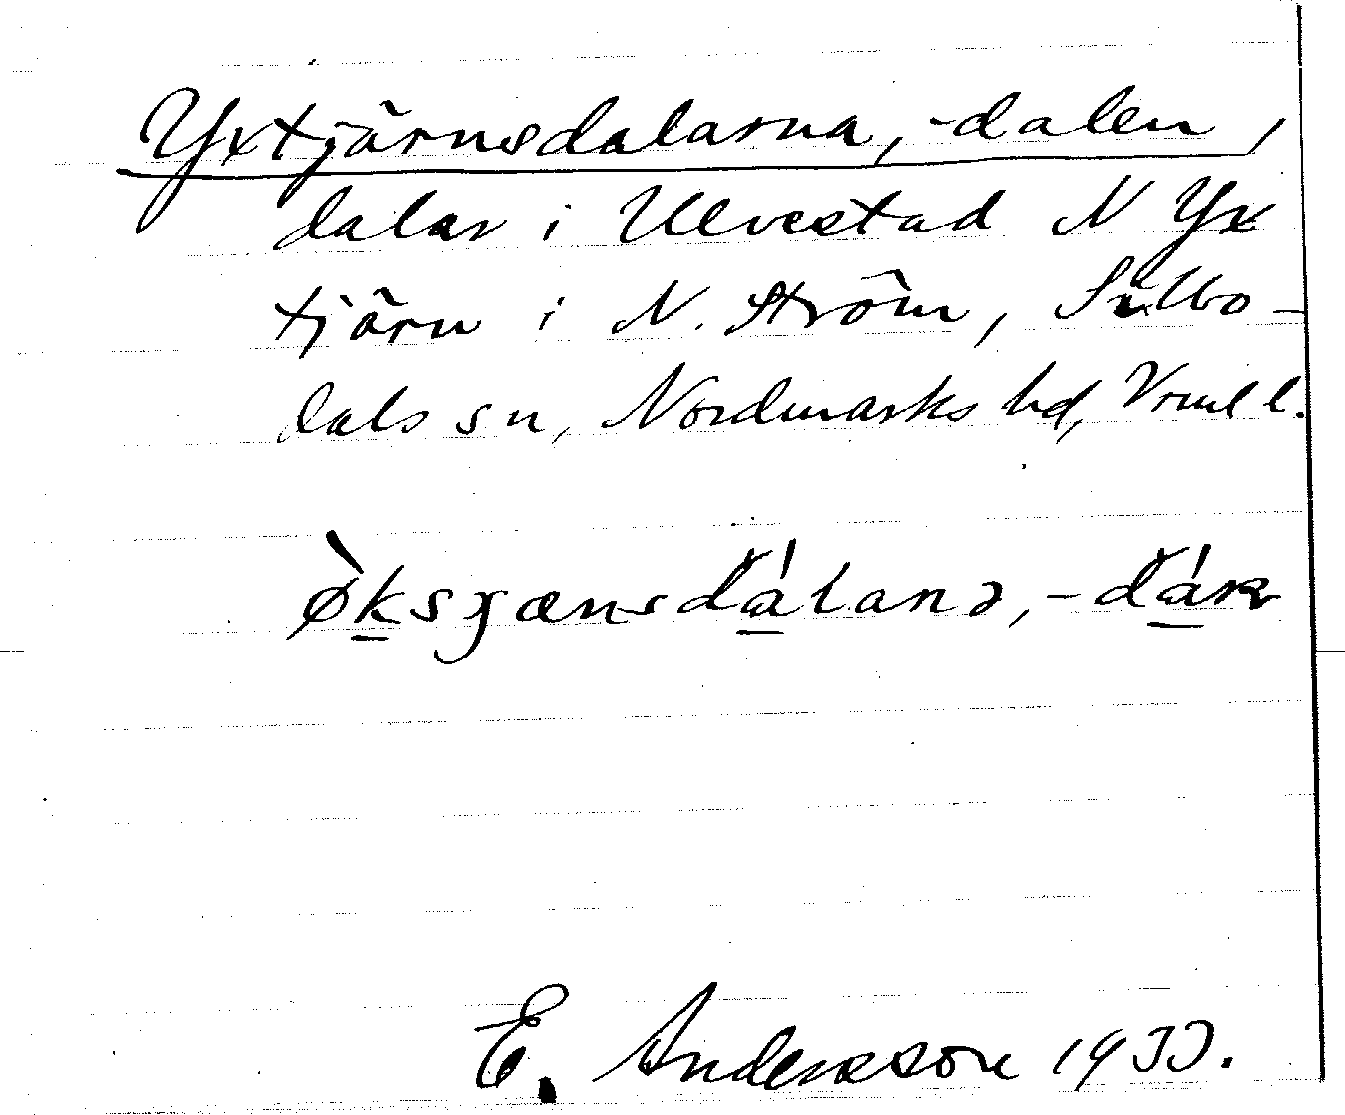 Yxtjärnsdalarna, -dalen,
dalar i Ulvestad N Yx
tjärn i N. Ström, Sillbo-
dals sn, Nordmarks hd, Vrml l.
E. Andersson 1933.